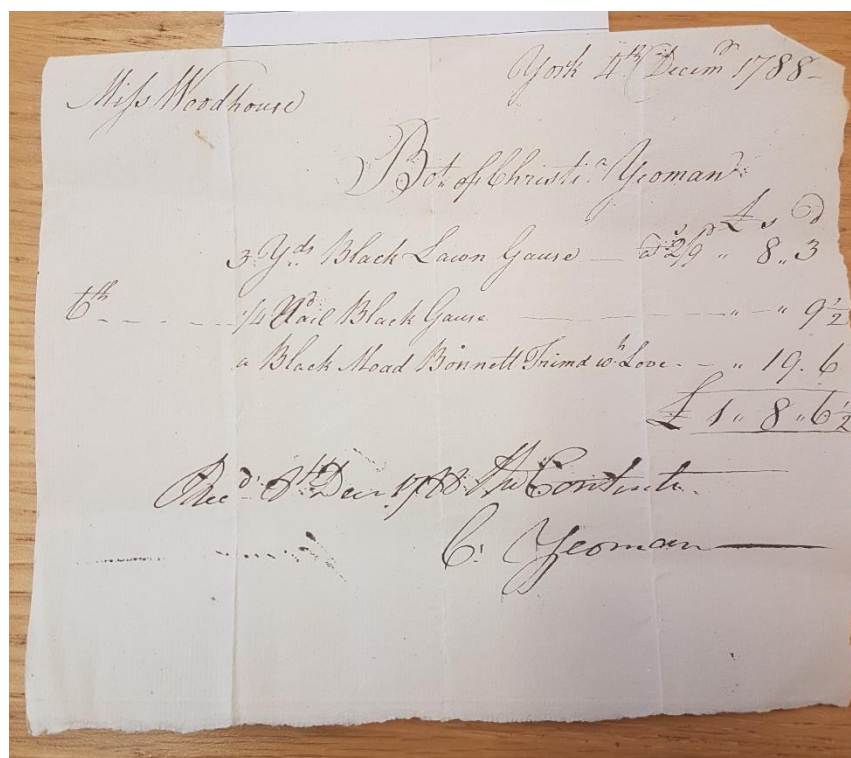 York 4th Decemr 1788
Miss Woodhouse
Bot. of Christi.a Yeoman
£ s d
3 Yds Black Lawn Gause — a 2s/9d „ 8„ 3
6th - - - - 1/4 Black Gause — „ — „ 9 1/2
a Black Moad Bonnett Trimd wh Love - — „ 19. 6
£ 1 „ 8 „ 6 1/2
Recd 8th Decr 1788 the Contents
C: Yeoman